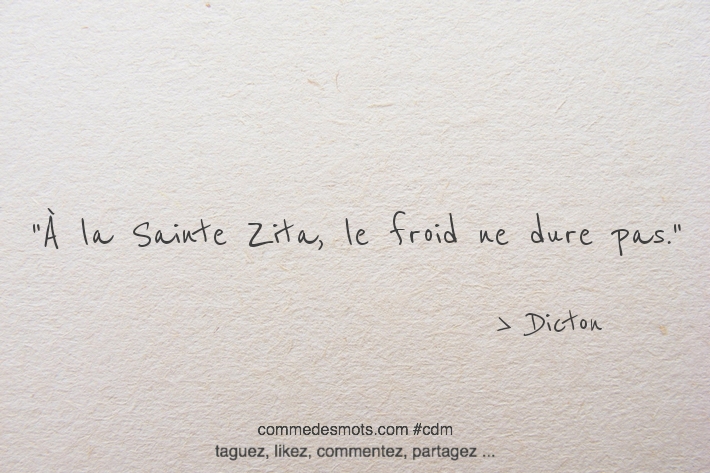 "À la Sainte Zita, le froid ne dure pas."
> Dicton
commedesmots.com #cdm
taguez, likez, commentez, partagez ...